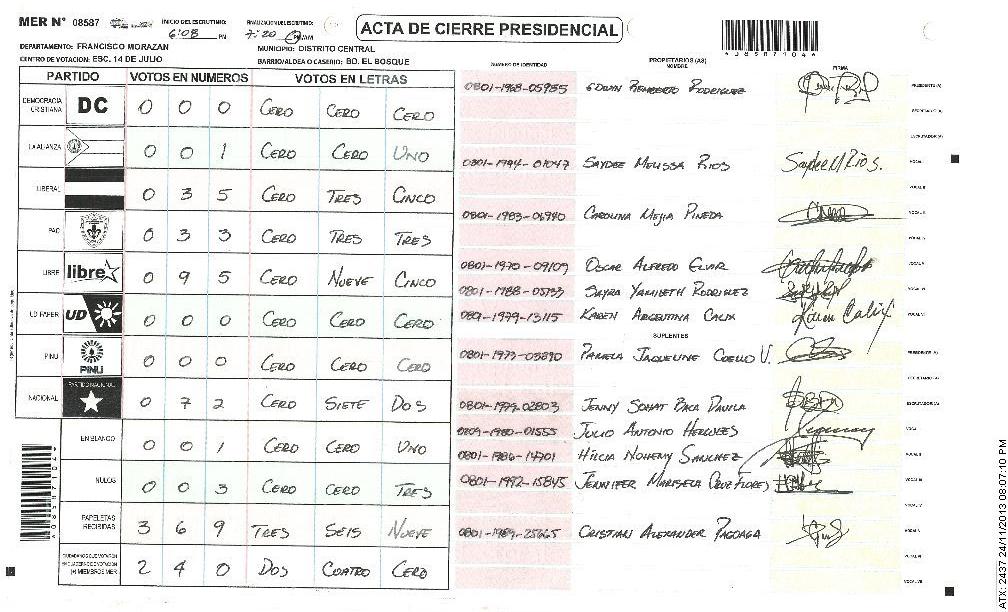 MER N° 08587
INICIO DEL ESCRUTINIO:
6:08 PM
FINALIZACION DEL ESCRUTINIO:
7:20 AM
ACTA DE CIERRE PRESIDENCIAL
DEPARTAMENTO: FRANCISCO MORAZAN
MUNICIPIO: DISTRITO CENTRAL
CENTRO DE VOTACION: ESC. 14 DE JULIO
BARRIO/ALDEA O CASERIO: BO. EL BOSQUE
PARTIDO VOTOS EN NUMEROS VOTOS EN LETRAS
DEMOCRACIA CRISTIANA DC 0 0 0 CERO CERO CERO
LA ALIANZA 0 0 1 CERO CERO UNO
LIBERAL 0 3 5 CERO TRES CINCO
PAC 0 3 3 CERO TRES TRES
LIBRE libre 0 9 5 CERO NUEVE CINCO
UD FAPER UD 0 0 0 CERO CERO CERO
PINU PINU 0 0 0 CERO CERO CERO
NACIONAL PARTIDO NACIONAL 0 7 2 CERO SIETE DOS
EN BLANCO 0 0 1 CERO CERO UNO
NULOS 0 0 3 CERO CERO TRES
PAPELETAS RECIBIDAS 3 6 9 TRES SEIS NUEVE
CIUDADANOS QUE VOTARON
EN CUADERNO DE VOTACION
(+) MIEMBROS MER 2 4 0 DOS CUATRO CERO
NUMERO DE IDENTIDAD
PROPIETARIOS (AS)
NOMBRE
FIRMA
0801-1968-05955 EDWIN RODRIGUEZ PRESIDENTE (A)
SECRETARIO (A)
ESCRUTADOR (A)
0801-1994-01047 SAYDEE MELISSA RIOS Saydee M Rios. VOCAL I
VOCAL II
0801-1983-06940 CAROLINA MEJIA PINEDA VOCAL III
VOCAL IV
0801-1970-09109 OSCAR ALFREDO ELVIR VOCAL V
0801-1988-05133 SAYRA YAMILETH RODRIGUEZ VOCAL VI
0801-1979-13115 KAREN ARGENTINA CALIX Karen Calix VOCAL VII
SUPLENTES
0801-1973-03890 PAMELA JAQUELINE COELLO V. PRESIDENTE (A)
SECRETARIO (A)
0801-1979-02803 JENNY BACA DAVILA ESCRUTADOR (A)
0209-1980-01555 JULIO ANTONIO VOCAL I
0801-1986-14701 HILCIA NOHEMY SANCHEZ VOCAL II
0801-1992-15845 JENNIFER MARISELA CRUZ FLORES VOCAL III
VOCAL IV
0801-1989-25665 CRISTIAN ALEXANDER PAGOAGA VOCAL V
VOCAL VI
VOCAL VII
ATX: 2437 24/11/2013 08:07:10 PM